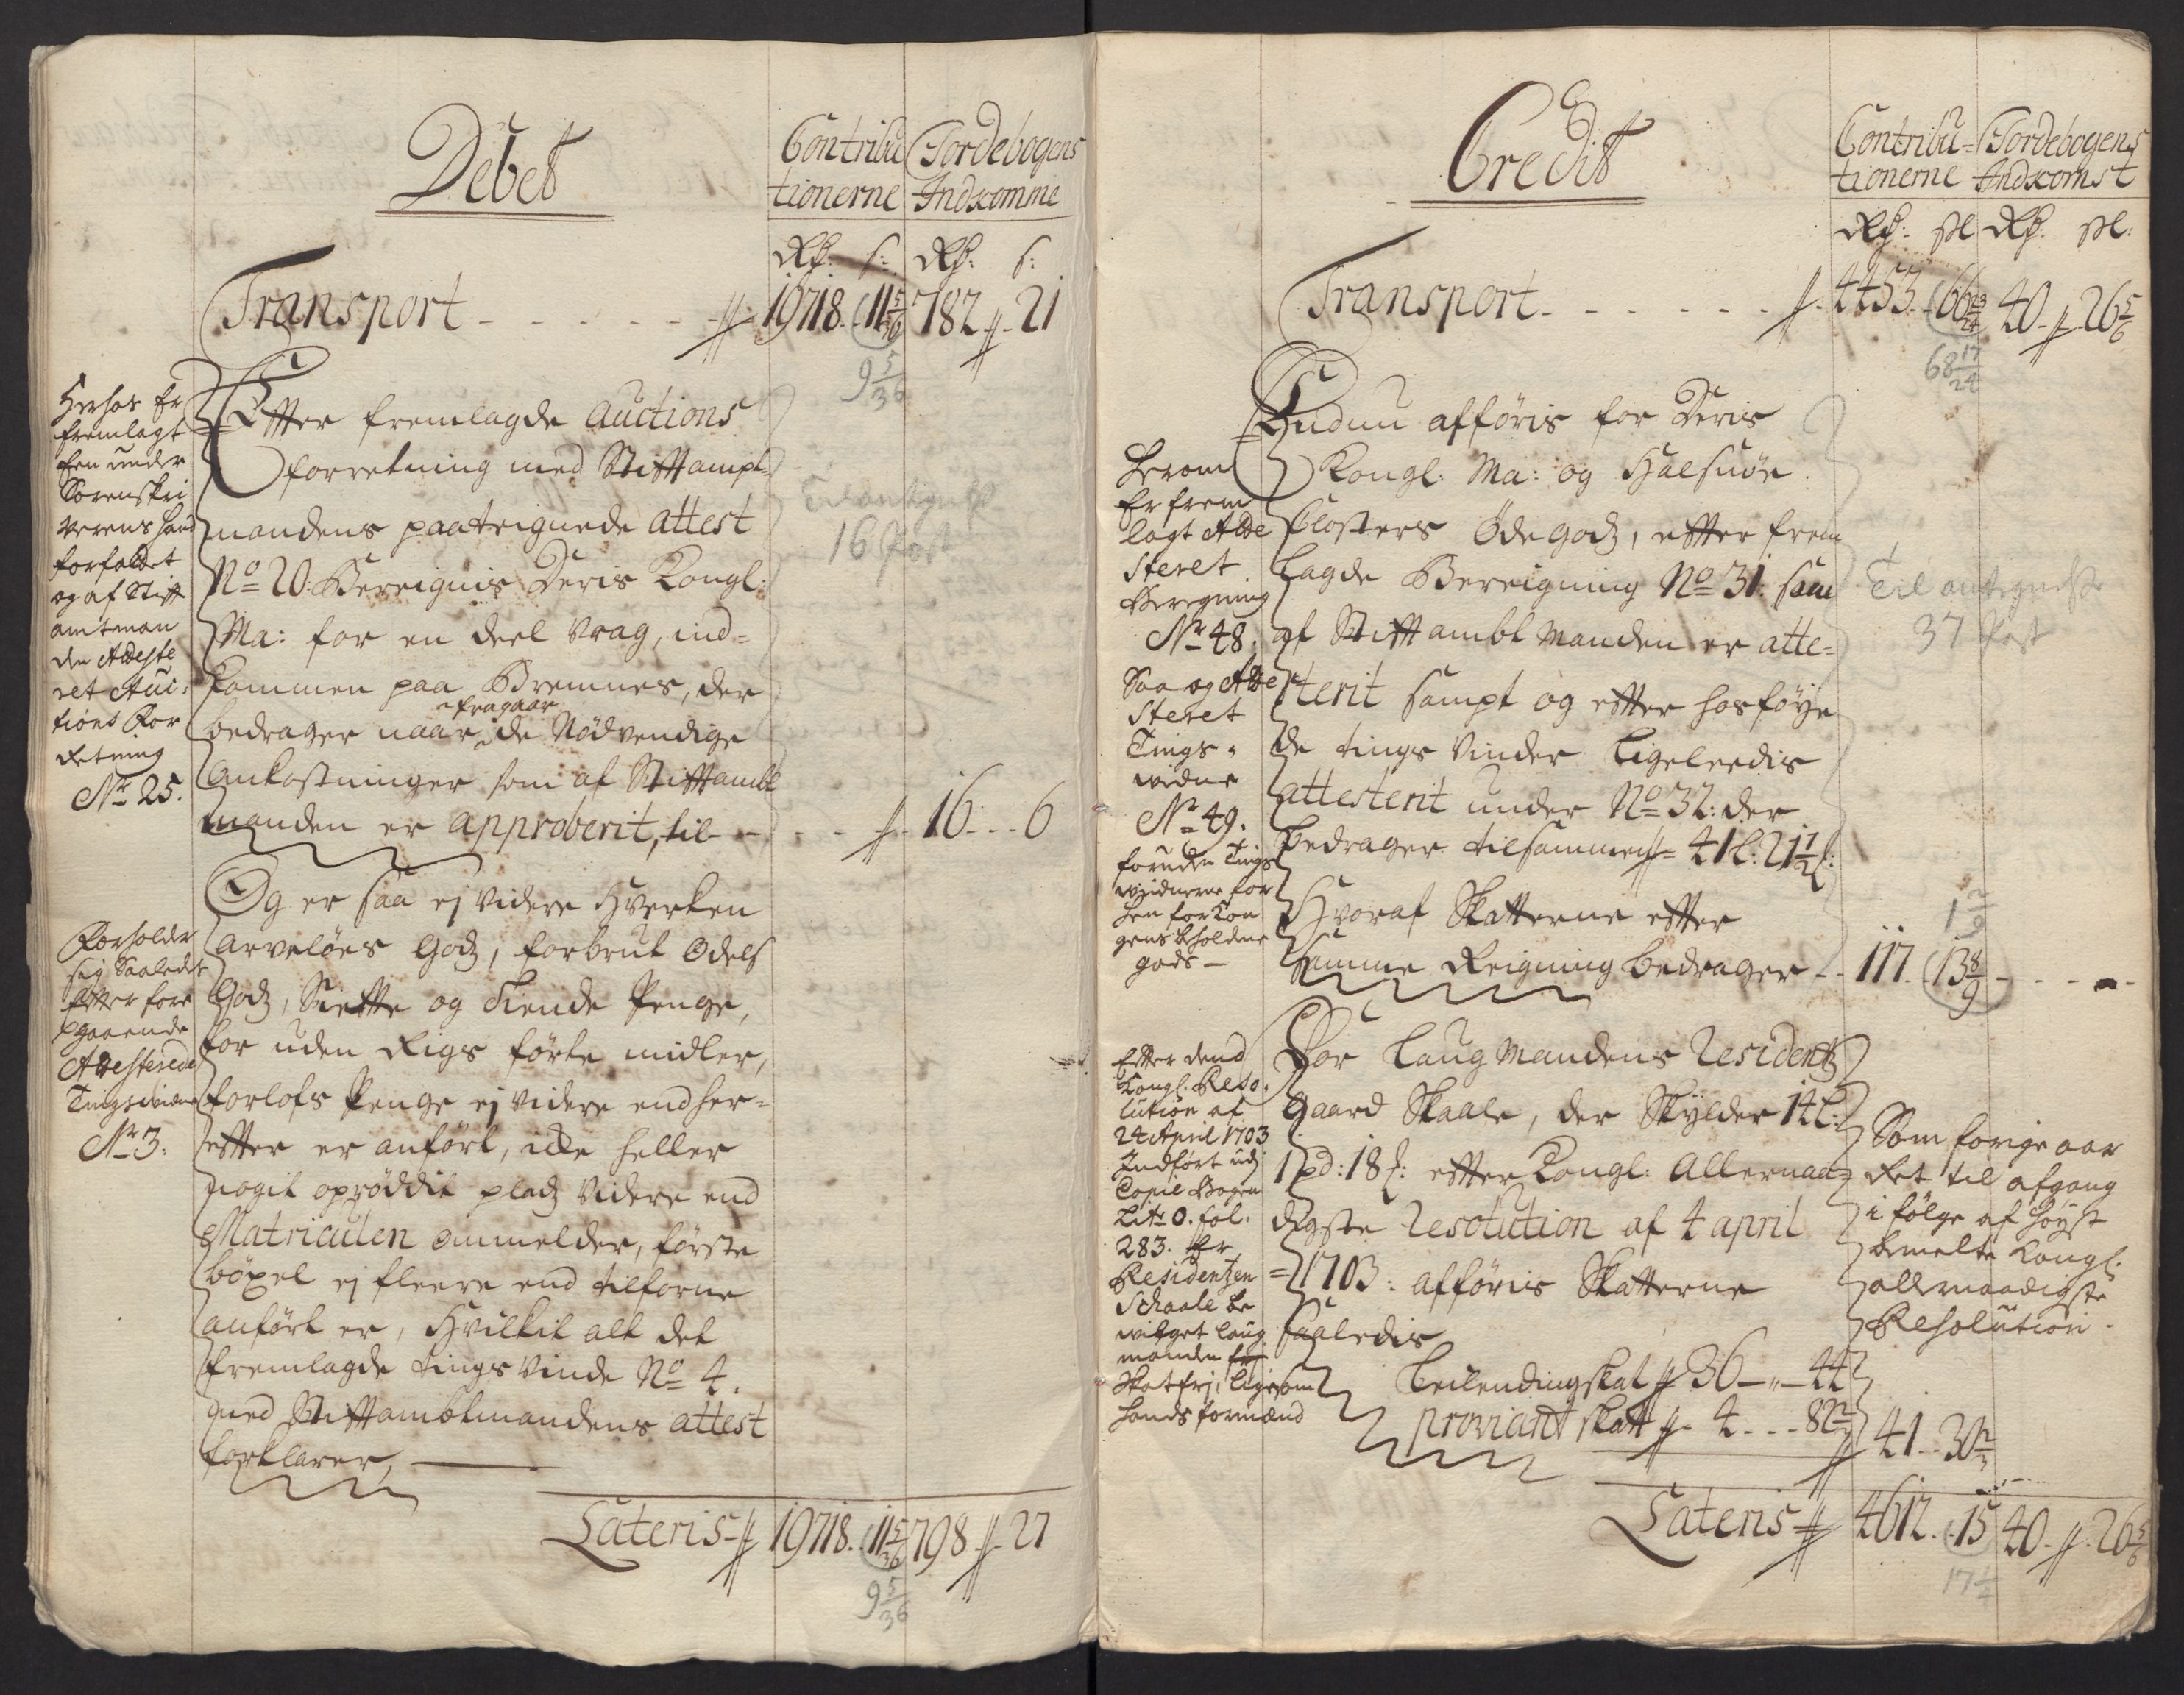 Debet
Contribu
tionerne
Jordebogens
Indkomme
Rd: s: Rd: s:
Transport - - - - - 19718. 11 5/36 782 21
9 5/36
Herhos Er
fremlagt
Een under
Sorenskri
verens haand
forfattet
og af Stift
amtman
den Atteste
ret Auc-
tions For
retning
No 25.
Efter fremlagde Auctions
forretning med Stiftampt-
mandens paategnede attest
No 20: Bereignis Deris Kongl:
Ma: for en deel vrag, ind-
kommen paa Bremnes, der
bedrager naar fragaar de Nødvendige
Omkostninger som af Stiftambt
manden er approberit, til - - - - 16 - - 6
Til antegnelse
16 Post
Forholder
sig Saaledes
Efter fore
gaaende
Attesterede
Tingsvidne
No 3.
Og er saa ej videre Hverken
arveløes Godz, forbrut Odels
Godz, Siette og Tiende Penge,
for uden Rigs førte midler,
forlofs Penge ej videre end her-
efter er anført, icke heller
nogit oprøddit pladz videre end
Matriculen ommelder, første
böxel ej fleere end tilforne
anført er, Hvilkit alt det
fremlagde tings Vinde No 4.
med Stiftambtmandens attest
forklarer,
Lateris 19718. 11 5/36 798 27
9 5/36
Credit
Contribu-
tionerne
Jordebogens
Indkomst
Rd: sl Rd: sl:
Transport - - - - - 4453. 66 23/24 40 26 5/6
68 17/24
Herom
Er frem
lagt Atte
steret
Beregning
No 48.
Saa og Atte
steret
Tings-
widne
No 49.
foruden Tings
widnerne for
hen for Kon
gens beholdne
gods -
Endnu afføris for Deris
Kongl: Ma: og Halsnöe
Closters Öde godz, efter frem
lagde Bereigning No 31: som
af Stiftambt manden er atte-
sterit sampt og efter hosföye
de tings Vinder Ligeleedis
attesterit under No 32: der
bedrager tilsammen 41 l: 21 1/2 s:
Hvoraf Skatterne efter
samme Reigning bedrager - - 117. 13 8/9 - - -
1 2/9
Til antegnelse
37 Post
Efter dend
Kongl. Reso-
lution af
24 April 1703
Indført udj
Copie Bogen
Litr O. fol.
283. Er
Residentzen
Schaale be
wilget laug
manden
Skatfrj, ligesom
hands formænd
For Laug Mandens Residentz
Gaard Skaale, der Skylder 1 t l:
1 pd: 18 s: efter Kongl: Allernaa-
digste Resolution af 4 april
1703: afføris Skatterne
Saaledis
Leilendingskat 36 - " - 44
proviant skatt 4 - - - 82 2/3
41 - - 30 2/3
Som forige aar
ret til afgang
i følge af høyst
bemelte Kongl.
allernaadigste
Resolution.
Lateris 4612. 15 40 26 5/6
17 1/3